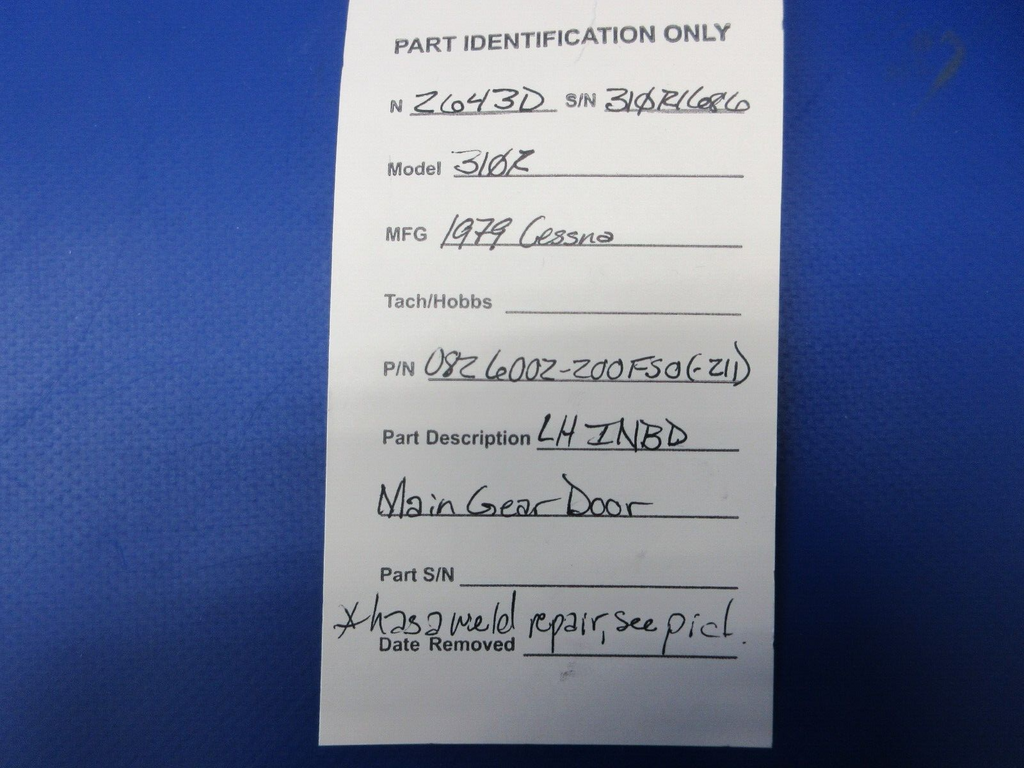 PART IDENTIFICATION ONLY
N 2643D S/N 310R1686
Model 310R
MFG 1979 Cessna
Tach/Hobbs
P/N 0826002-200FSO(-211)
Part Description LH INBD
Main Gear Door
Part S/N
*has a weld repair, see pic1.
Date Removed